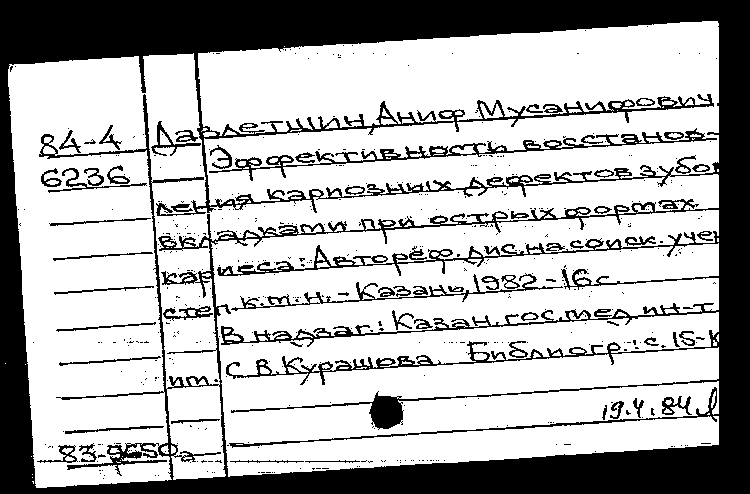 84-4 Давлетшин, Аниф Мусанифович.
6236 Эффективность восстанов-
ления кариозных дефектов зубов
вкладками при острых формах
кариеса: Автореф. дис. на соиск. учен
степ. к.м.н. - Казань, 1982 - 16 с.
В надзаг.: Казан. гос. мед. ин-т
им. С.В. Курашова. Библиогр.: с. 15-
19.4.84